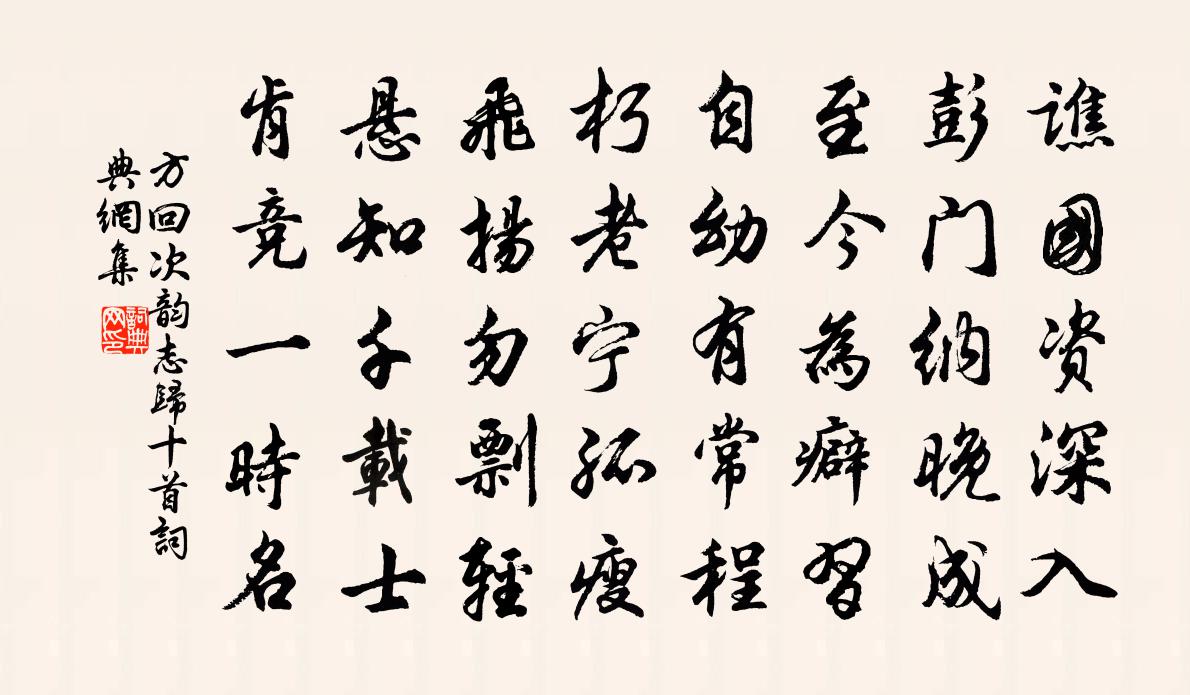 譙國资深入
彭门纳晚成
至今為癖習
自幼有常程
朽老宁孤瘦
飛揚勿剽輕
悬知千載士
肯竞一時名
方回次韵志歸十首詞
典網集
詞典网印